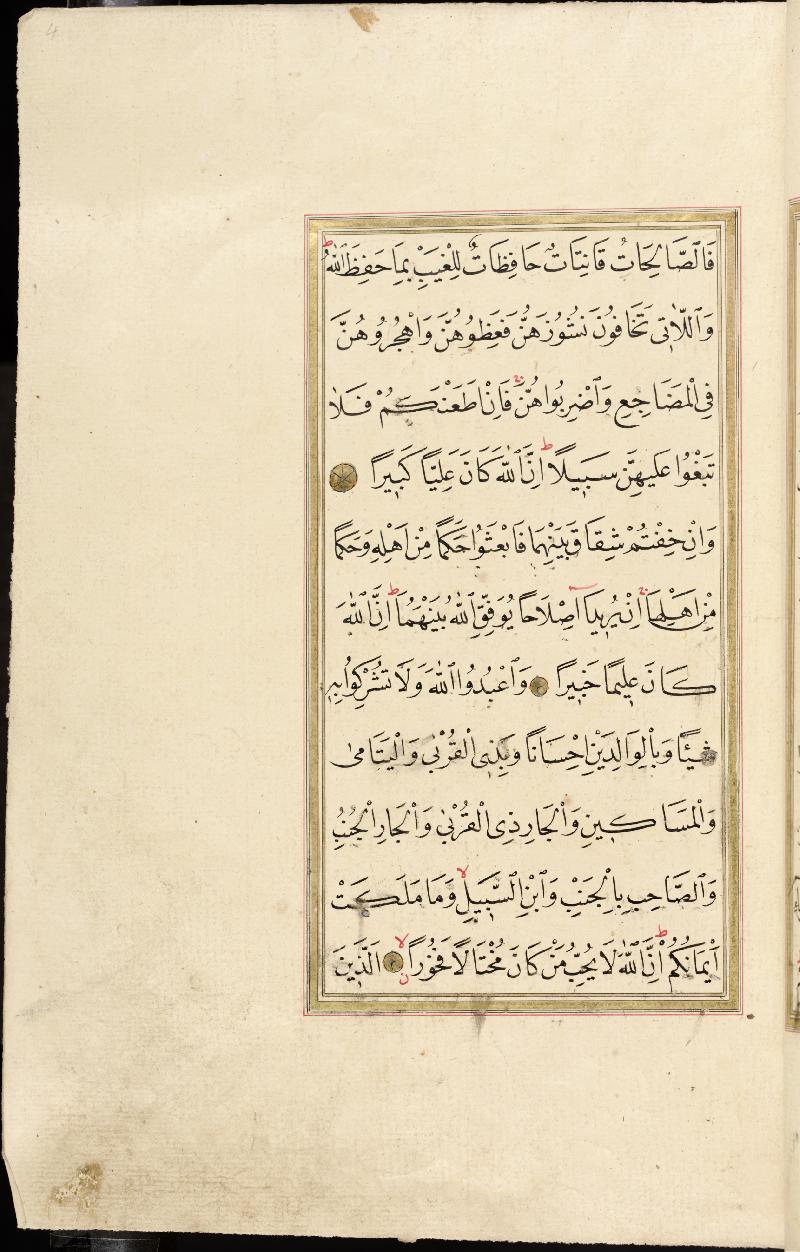 فَالصَّالِحَاتُ قَانِتَاتٌ حَافِظَاتٌ لِلْغَيْبِ بِمَا حَفِظَ اللّٰهُ ط
وَاللّٰاتٖى تَخَافُونَ نُشُوزَهُنَّ فَعِظُوهُنَّ وَاهْجُرُوهُنَّ
فِى الْمَضَاجِعِ وَاضْرِبُواهُنَّ ج فَاِنْ اَطَعْنَكُمْ فَلَا
تَبْغُوا عَلَيْهِنَّ سَبٖيلًا ط اِنَّ اللّٰهَ كَانَ عَلِيًّا كَبٖيرًا
وَاِنْ خِفْتُمْ شِقَاقَ بَيْنِهِمَا فَابْعَثُوا حَكَمًا مِنْ اَهْلِهٖ وَحَكَمًا
مِنْ اَهْلِهَا ج اِنْ يُرٖيدَا اِصْلَاحًا يُوَفِّقِ اللّٰهُ بَيْنَهُمَا ط اِنَّ اللّٰهَ
كَانَ عَلٖيمًا خَبٖيرًا وَاعْبُدُوا اللّٰهَ وَلَا تُشْرِكُوا بِهٖ
شَيْئًا وَبِالْوَالِدَيْنِ اِحْسَانًا وَبِذِى الْقُرْبٰى وَالْيَتَامٰى
وَالْمَسَاكٖينِ وَالْجَارِ ذِى الْقُرْبٰى وَالْجَارِ الْجُنُبِ
وَالصَّاحِبِ بِالْجَنْبِ وَابْنِ السَّبٖيلِ لا وَمَا مَلَكَتْ
اَيْمَانُكُمْ ط اِنَّ اللّٰهَ لَا يُحِبُّ مَنْ كَانَ مُخْتَالًا فَخُورًا لا اَلَّذٖينَ